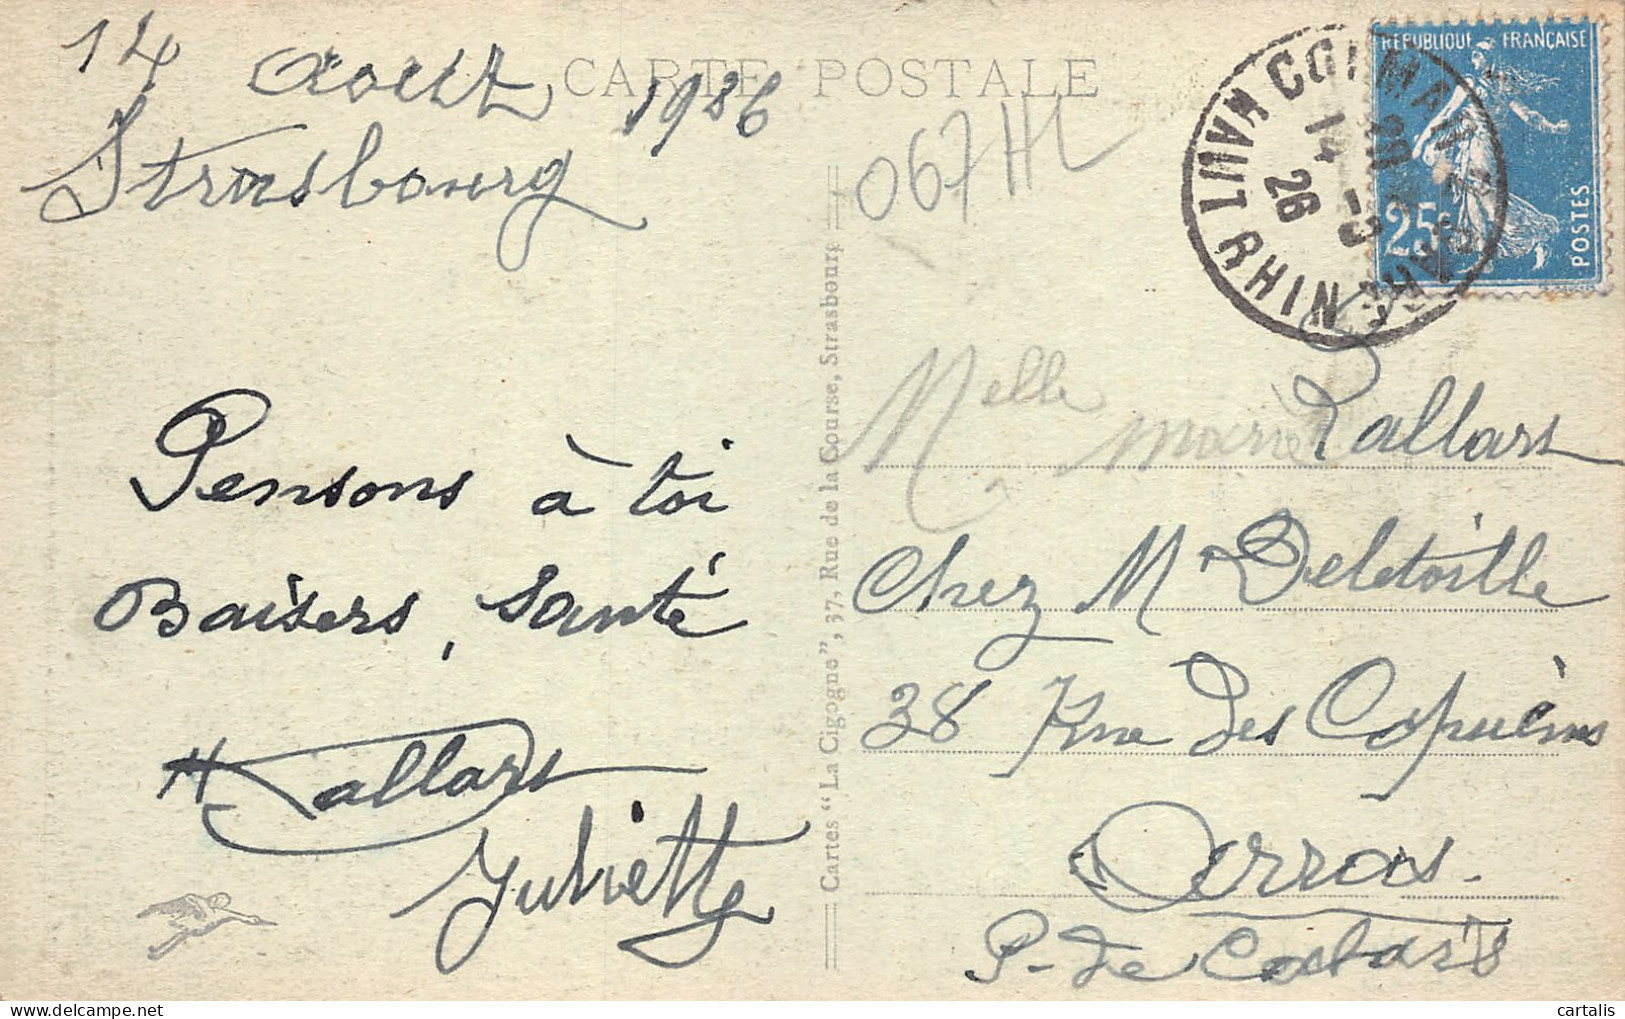 CARTE POSTALE
14 Août 1926
Strasbourg
067 HL
RÉPUBLIQUE FRANÇAISE
25c
POSTES
COLMAR GARE
HAUT RHIN
14 -8
26
Pensons à toi
Baisers, santé
Lallars
Juliette
Cartes "La Cigogne", 37, Rue de la Course, Strasbourg
Melle Marie Lallars
Chez Mr Deletoille
38 Rue des Capucins
Arras.
P-de Calais
cartalis